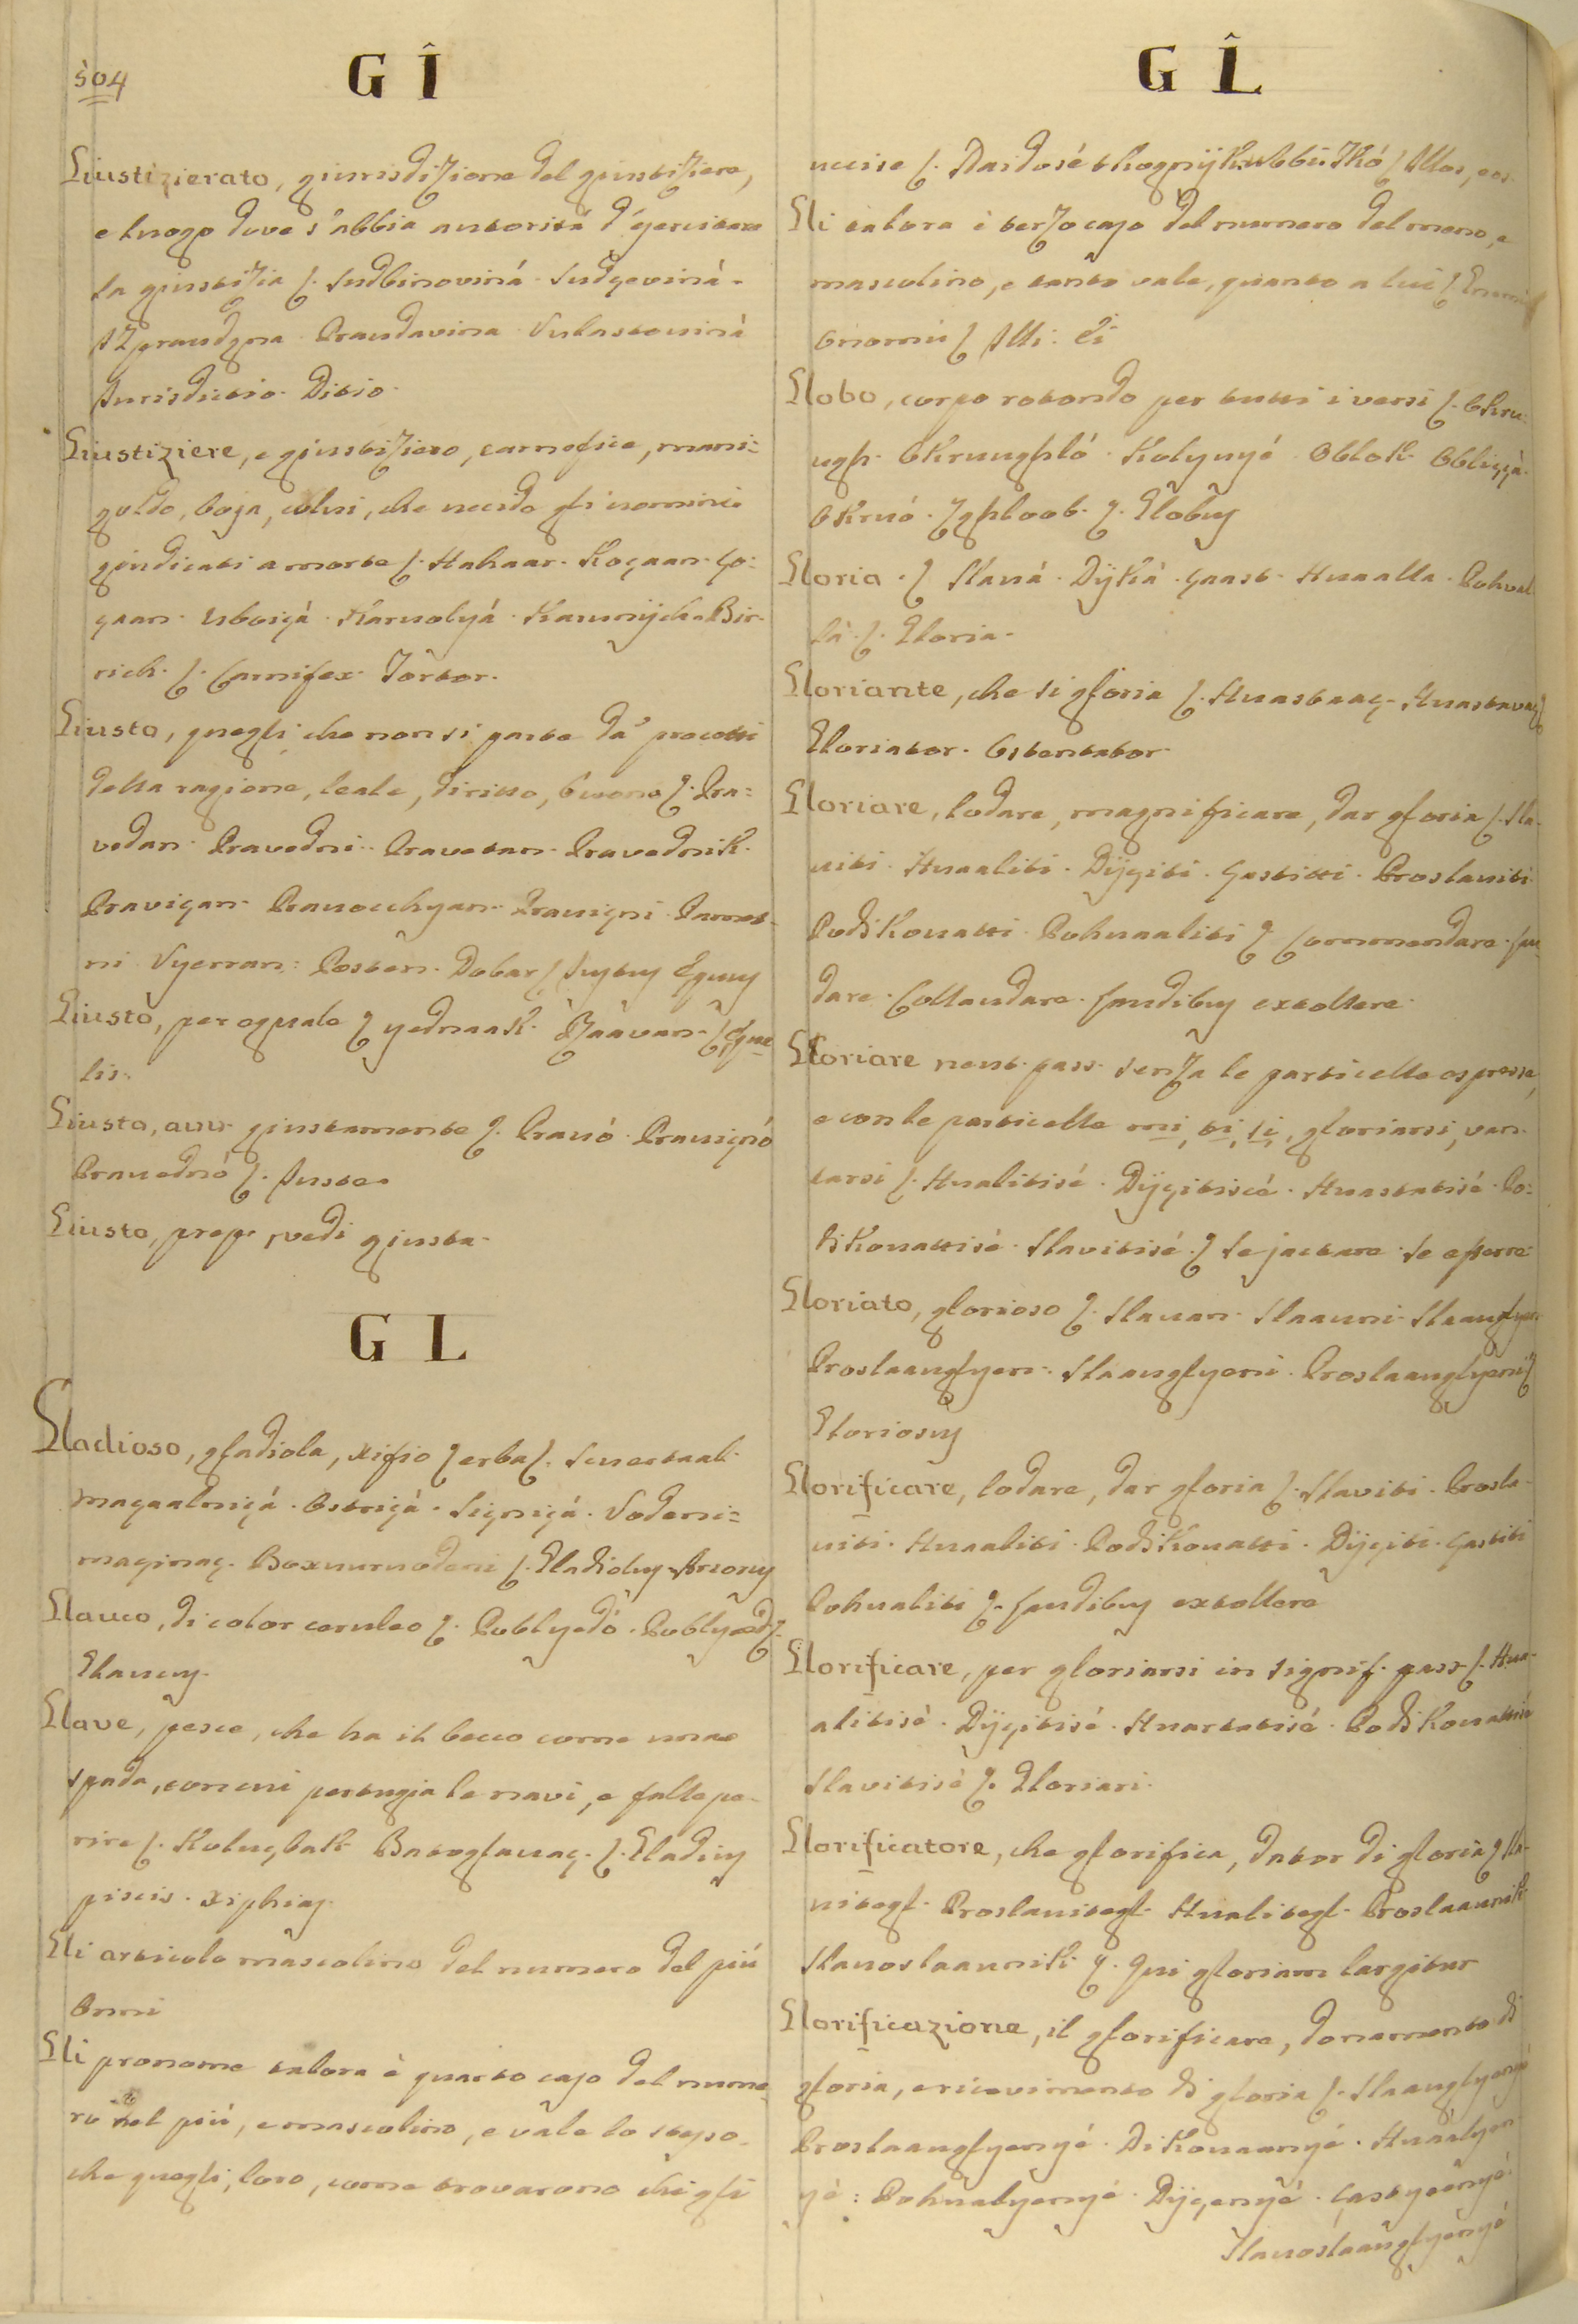 504
G I
Giustizierato, giurisdizione del giustiziere,
e luogo dove s'abbia autorità d'esercitare
la giustizia ſ. Sudbinoviná. Sudçeviná.
Praudavina
Jurisdictio. Ditio.
Giustiziere, e giustiziero, carnefice, mani=
goldo, boja, colui, che uccide gli uomini
giudicati a morte ſ. Kogaan.
Uboiçá. Karuolyá.
rich. ſ. Carnifex. Tortor.
Giusto, quegli che non si parte da' precetti
della ragione, leale, diritto, buono ſ. Pra=
vedan. Pravedni. Pravetan. Pravednik.
Praviçan. Prauocchyan. Prauiçni.
ni. Vyerran. Posten. Dobar ſ
Giusto, per eguale ſ yednaak.
lis.
Giusto, auu. giustamente ſ. Prauó. Prauiçnó
Prauednó ſ. Juste.
Giusto, prep. vedi giusta.
G L
Gladioso, gladiola, xifio ſ erba ſ.
magaalniçá. Ostriçá. Signiçá. Vodeni=
maçinaç. ſ. Gladiolus
Glauco, di color ceruleo ſ. Publyedó. Publyed ſ.
Glaucus.
Glave, pesce, che ha il becco come una
spada, con cui pertugia le navi, e falle pe=
rire ſ. Batoglauaç. ſ. Gladius
piscis. Xiphias.
Gli articolo mascolino del numero del più
Onni
Gli pronome talora è quarto caso del nume=
ro del più, e mascolino, e vale lo stesso
che quegli, loro, come trovarono chi gli
G L
uccise ſ. Illos, eos.
Gli talora è terzo caso del numero del meno, e
mascolino, e tanto vale, quanto a lui ſ
Onomu ſ Illi. Ei
Globo, corpo rotondo per tutti i versi ſ. Okru=
ugh. Okrunghló. Kolyuyé. Oblok. Obliççá.
Okruó. ſ. Globus
Gloria. ſ Slauá. Dijká. Çaast. Huaalla. Pohval=
lá. ſ. Gloria.
Gloriante, che si gloria ſ. Huastaaç. Huastavaç ſ
Gloriator. Ostentator.
Gloriare, lodare, magnificare, dar gloria ſ. Sla=
uiti. Huaaliti. Dijçiti. Çastitti. Proslauiti.
Podikouatti. Pohuaaliti ſ Commendare. Lau=
dare. Collaudare. Laudibus extollere.
Gloriare neut. pass. senza le particelle espresse,
e con le particelle mi, ti, si, gloriarsi, van=
tarsi ſ. Hualitisé. Dijçitiscé. Huastatisé. Po=
dikouattisé. Slavitisé. ſ Se jactare. Se efferre
Gloriato, glorioso ſ. Slauan. Slaauni. Slaauglyen
Proslaauglyen. Slaauglyeni. Proslaauglyeni ſ
Gloriosus
Glorificare, lodare, dar gloria ſ. Slaviti. Prosla=
uiti. Huaaliti. Podikouatti. Dijçiti. Çastiti
Pohualiti ſ. Laudibus extollere
Glorificare, per gloriarsi in signif. pass. ſ. Hua=
alitisé. Dijçitisé. Huastatisé. Podikouattisé
Slavitisé ſ. Gloriari.
Glorificatore, che glorifica, dator di gloria ſ Sla=
uitegl. Proslauitegl. Hualitegl. Proslaaunik
Slauoslaaunik ſ. Qui gloriam largitur
Glorificazione, il glorificare, donamento di
gloria, e ricevimento di gloria ſ. Slaauglyenyé
Proslaauglyenyé. Dikouaanyé. Huaalyen=
yé: Pohualyenyé. Dijçenyé. Çastyeenyé.
Slauoslaauglyenyé